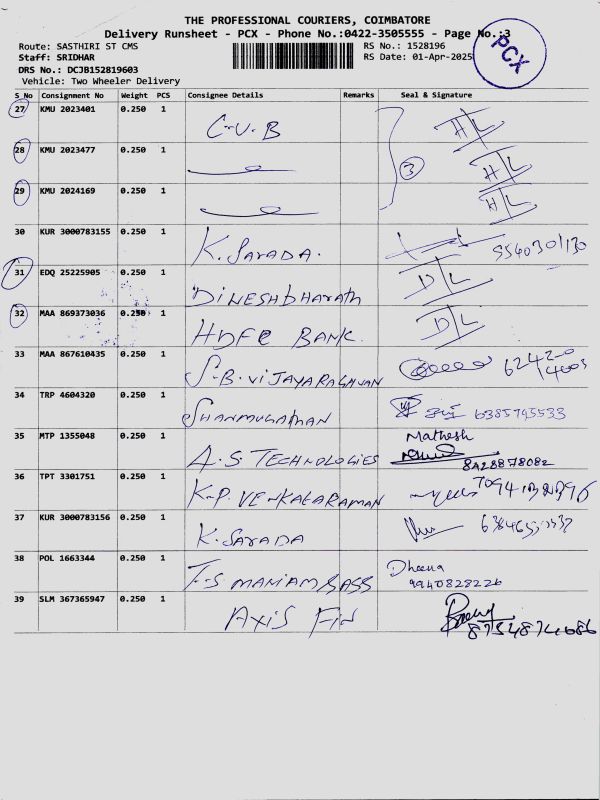 THE PROFESSIONAL COURIERS, COIMBATORE
Delivery Runsheet - PCX - Phone No.:0422-3505555 - Page No.:3
PCX
Route: SASTHIRI ST CMS RS No.: 1528196
Staff: SRIDHAR RS Date: 01-Apr-2025
DRS No.: DCJB152819603
Vehicle: Two Wheeler Delivery
S No Consignment No Weight PCS Consignee Details Remarks Seal & Signature
27 KMU 2023401 0.250 1 C-U-B H/L
28 KMU 2023477 0.250 1 3 H/L
29 KMU 2024169 0.250 1 H/L
30 KUR 3000783155 0.250 1 K. Sarada.
31 EDQ 25225905 0.250 1 DINESHbharath D/L
32 MAA 869373036 0.250 1 HDFC BANK. D/L
33 MAA 867610435 0.250 1 S.B. VIJAYARAGHVAN
34 TRP 4604320 0.250 1 SHANMUGATHAN
35 MTP 1355048 0.250 1 A.S. TECHNOLOGIES Mathesh
36 TPT 3301751 0.250 1 K.P. VENKATARAMAN
37 KUR 3000783156 0.250 1 K. SARADA
38 POL 1663344 0.250 1 Dheena
9940828226
39 SLM 367365947 0.250 1 AXIS Fin 8754874686